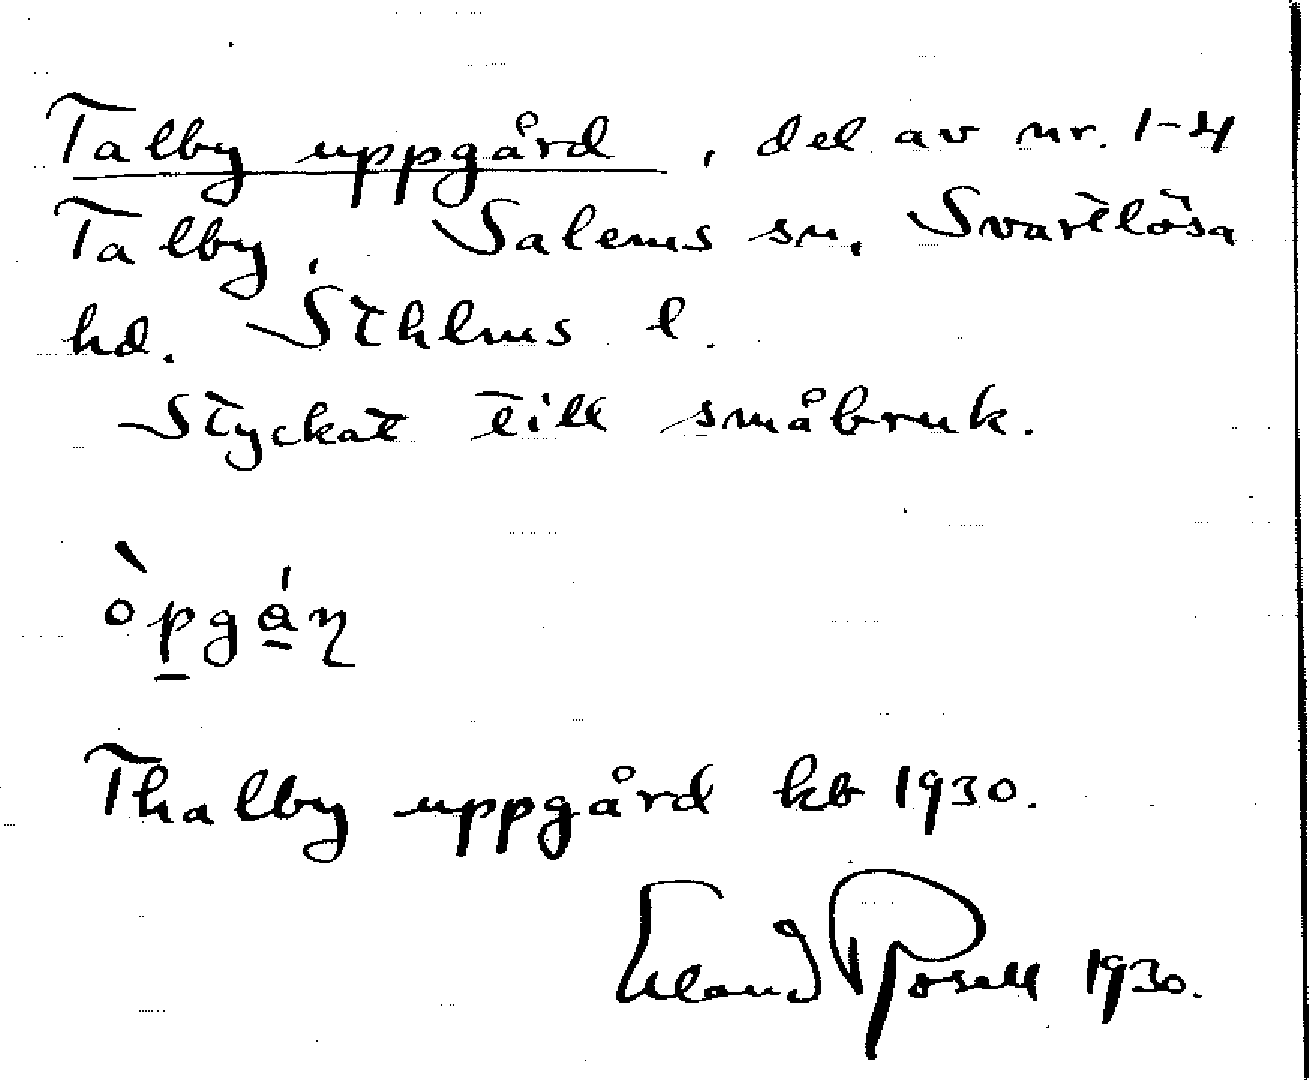 Talby uppgård, del av nr. 1-4
Talby, Salems sn, Svartlösa
hd. Sthlms l.
Styckat till småbruk.
Thalby uppgård kb 1930.
Erland Rosell 1930.